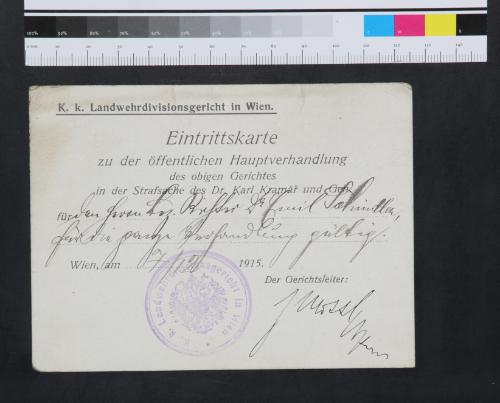 K. k. Landwehrdivisionsgericht in Wien.
Eintrittskarte
zu der öffentlichen Hauptverhandlung
des obigen Gerichtes
in der Strafsache des Dr. Karl Kramář und Gen.
für den Herrn Bez. Richter Dr Emil Schindler,
für die ganze Verhandlung gültig.
Wien, am 1915.
Der Gerichtsleiter:
K. k. Landwehrdivisionsgericht in Wien